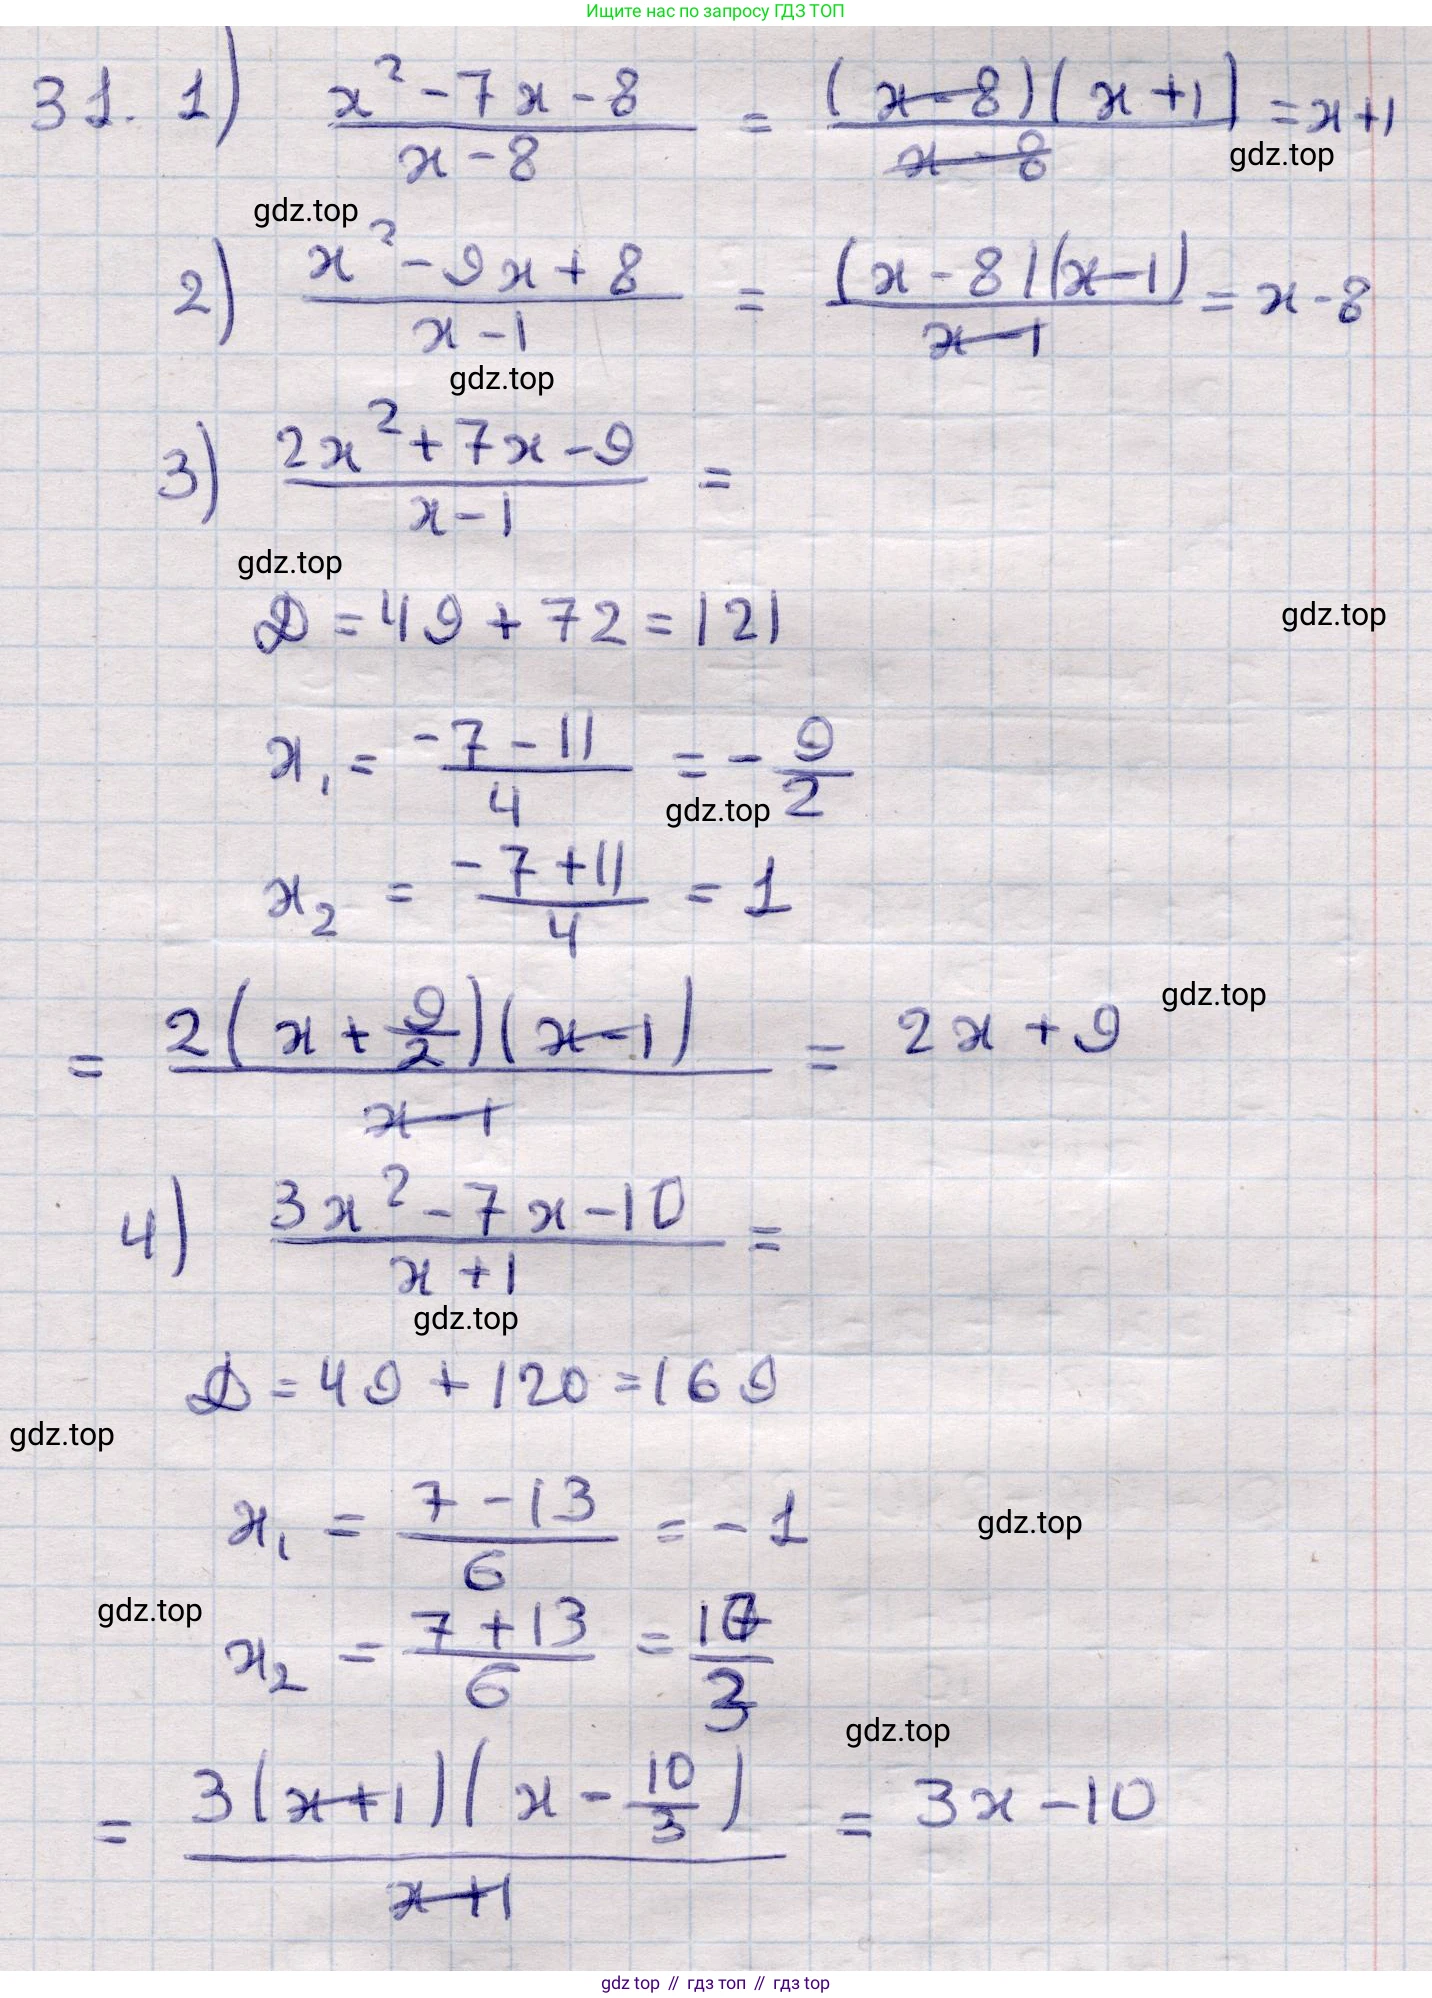 Ищите нас по запросу ГДЗ ТОП
31. 1) (x² - 7x - 8)/(x - 8) = ((x - 8)(x + 1))/(x - 8) = x + 1
gdz.top
gdz.top
2) (x² - 9x + 8)/(x - 1) = ((x - 8)(x - 1))/(x - 1) = x - 8
gdz.top
3) (2x² + 7x - 9)/(x - 1) =
gdz.top
D = 49 + 72 = 121
gdz.top
x₁ = (-7 - 11)/4 = -9/2
gdz.top
x₂ = (-7 + 11)/4 = 1
gdz.top
= (2(x + 9/2)(x - 1))/(x - 1) = 2x + 9
4) (3x² - 7x - 10)/(x + 1) =
gdz.top
D = 49 + 120 = 169
gdz.top
x₁ = (7 - 13)/6 = -1
gdz.top
gdz.top
x₂ = (7 + 13)/6 = 10/3
gdz.top
= (3(x + 1)(x - 10/3))/(x + 1) = 3x - 10
gdz top // гдз топ // гдз top